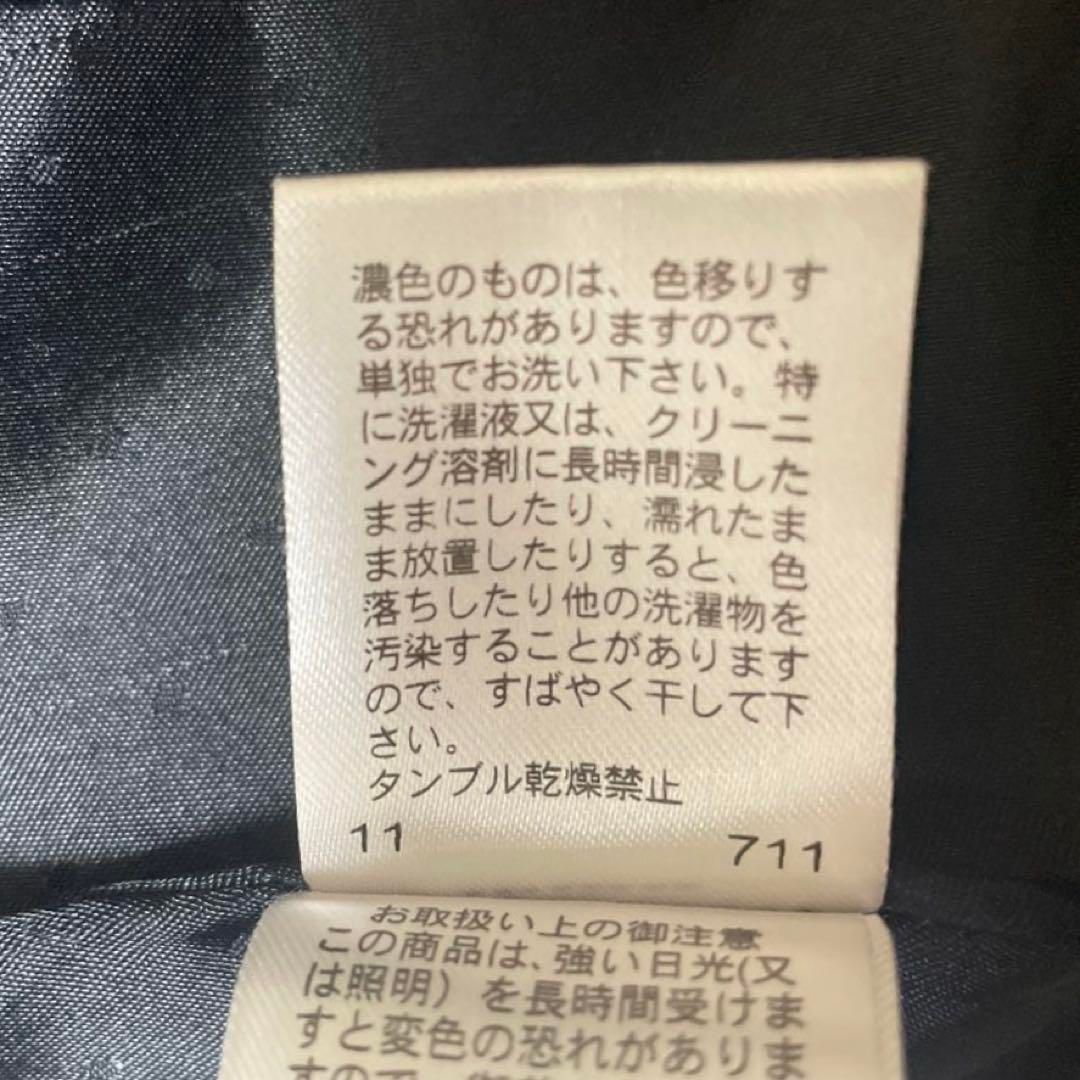 濃色のものは、色移りす
る恐れがありますので、
単独でお洗い下さい。特
に洗濯液又は、クリーニ
ング溶剤に長時間浸した
ままにしたり、濡れたま
ま放置したりすると、色
落ちしたり他の洗濯物を
汚染することがあります
ので、すばやく干して下
さい。
タンブル乾燥禁止
11 711
お取扱い上の御注意
この商品は、強い日光(又
は照明）を長時間受けま
すと変色の恐れがありま
すので